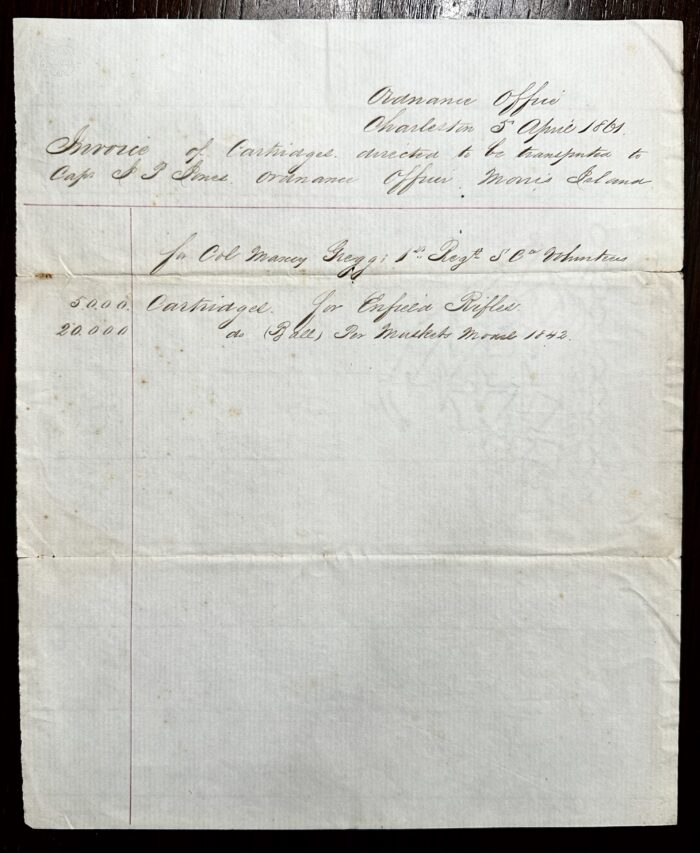 Ordnance Office
Charleston 5th April 1861.
Invoice of Cartridges. directed to be transported to
Capt J J Jones Ordnance Officer Morris Island
for Col Maxcy Gregg: 1st Regt S Ca Volunteers
5000. Cartridges. for Enfield Rifles.
20.000 do (Ball) For Muskets Model 1842.